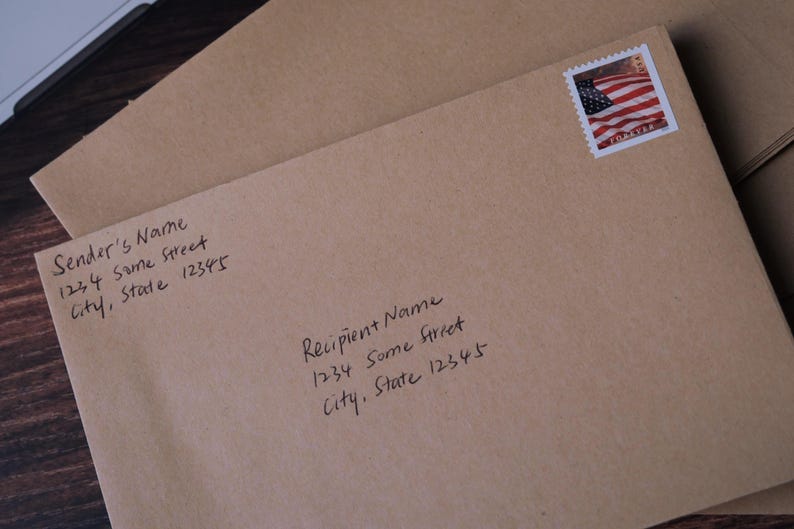 USA
FOREVER
Sender's Name
1234 Some Street
City, State 12345
Recipient Name
1234 Some Street
City, State 12345